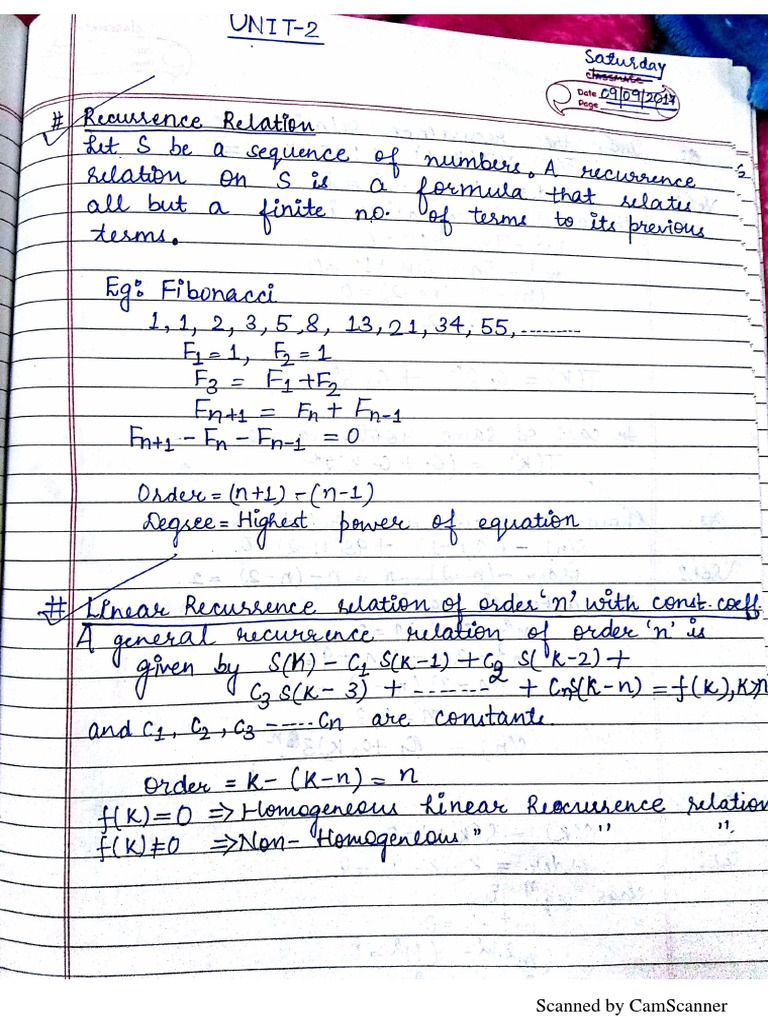 UNIT-2
Saturday
classmate
Date 09/09/2017
Page
# Recurrence Relation
Let S be a sequence of numbers. A recurrence
relation on S is a formula that relates
all but a finite no. of terms to its previous
terms.
Eg: Fibonacci
1, 1, 2, 3, 5, 8, 13, 21, 34, 55, ..........
F₁ = 1, F₂ = 1
F₃ = F₁ + F₂
Fn+1 = Fn + Fn-1
Fn+1 - Fn - Fn-1 = 0
Order = (n+1) - (n-1)
Degree = Highest power of equation
# Linear Recurrence relation of order 'n' with const. coeff.
A general recurrence relation of order 'n' is
given by S(K) - C₁ S(K-1) + C₂ S(K-2) +
C₃ S(K-3) + ........ + Cn S(K-n) = f(K), K≥n
and C₁, C₂, C₃ ----- Cn are constants.
Order = K - (K-n) = n
f(K) = 0 ⇒ Homogeneous Linear Recurrence relation
f(K) ≠ 0 ⇒ Non-Homogeneous " " "
Scanned by CamScanner